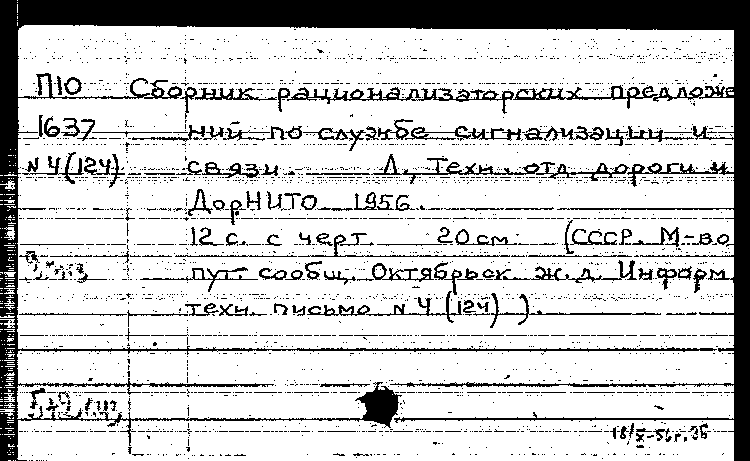 П10 Сборник рационализаторских предложе
1637 ний по службе сигнализации и
N 4 (124) связи. Л., Техн. отд дороги и
ДорНИТО 1956.
12 с. с черт. 20 см. (СССР. М-во
пут. сообщ. Октябрьск ж.д. Информ.
техн. письмо N 4 (124) ).
18/X-56г.